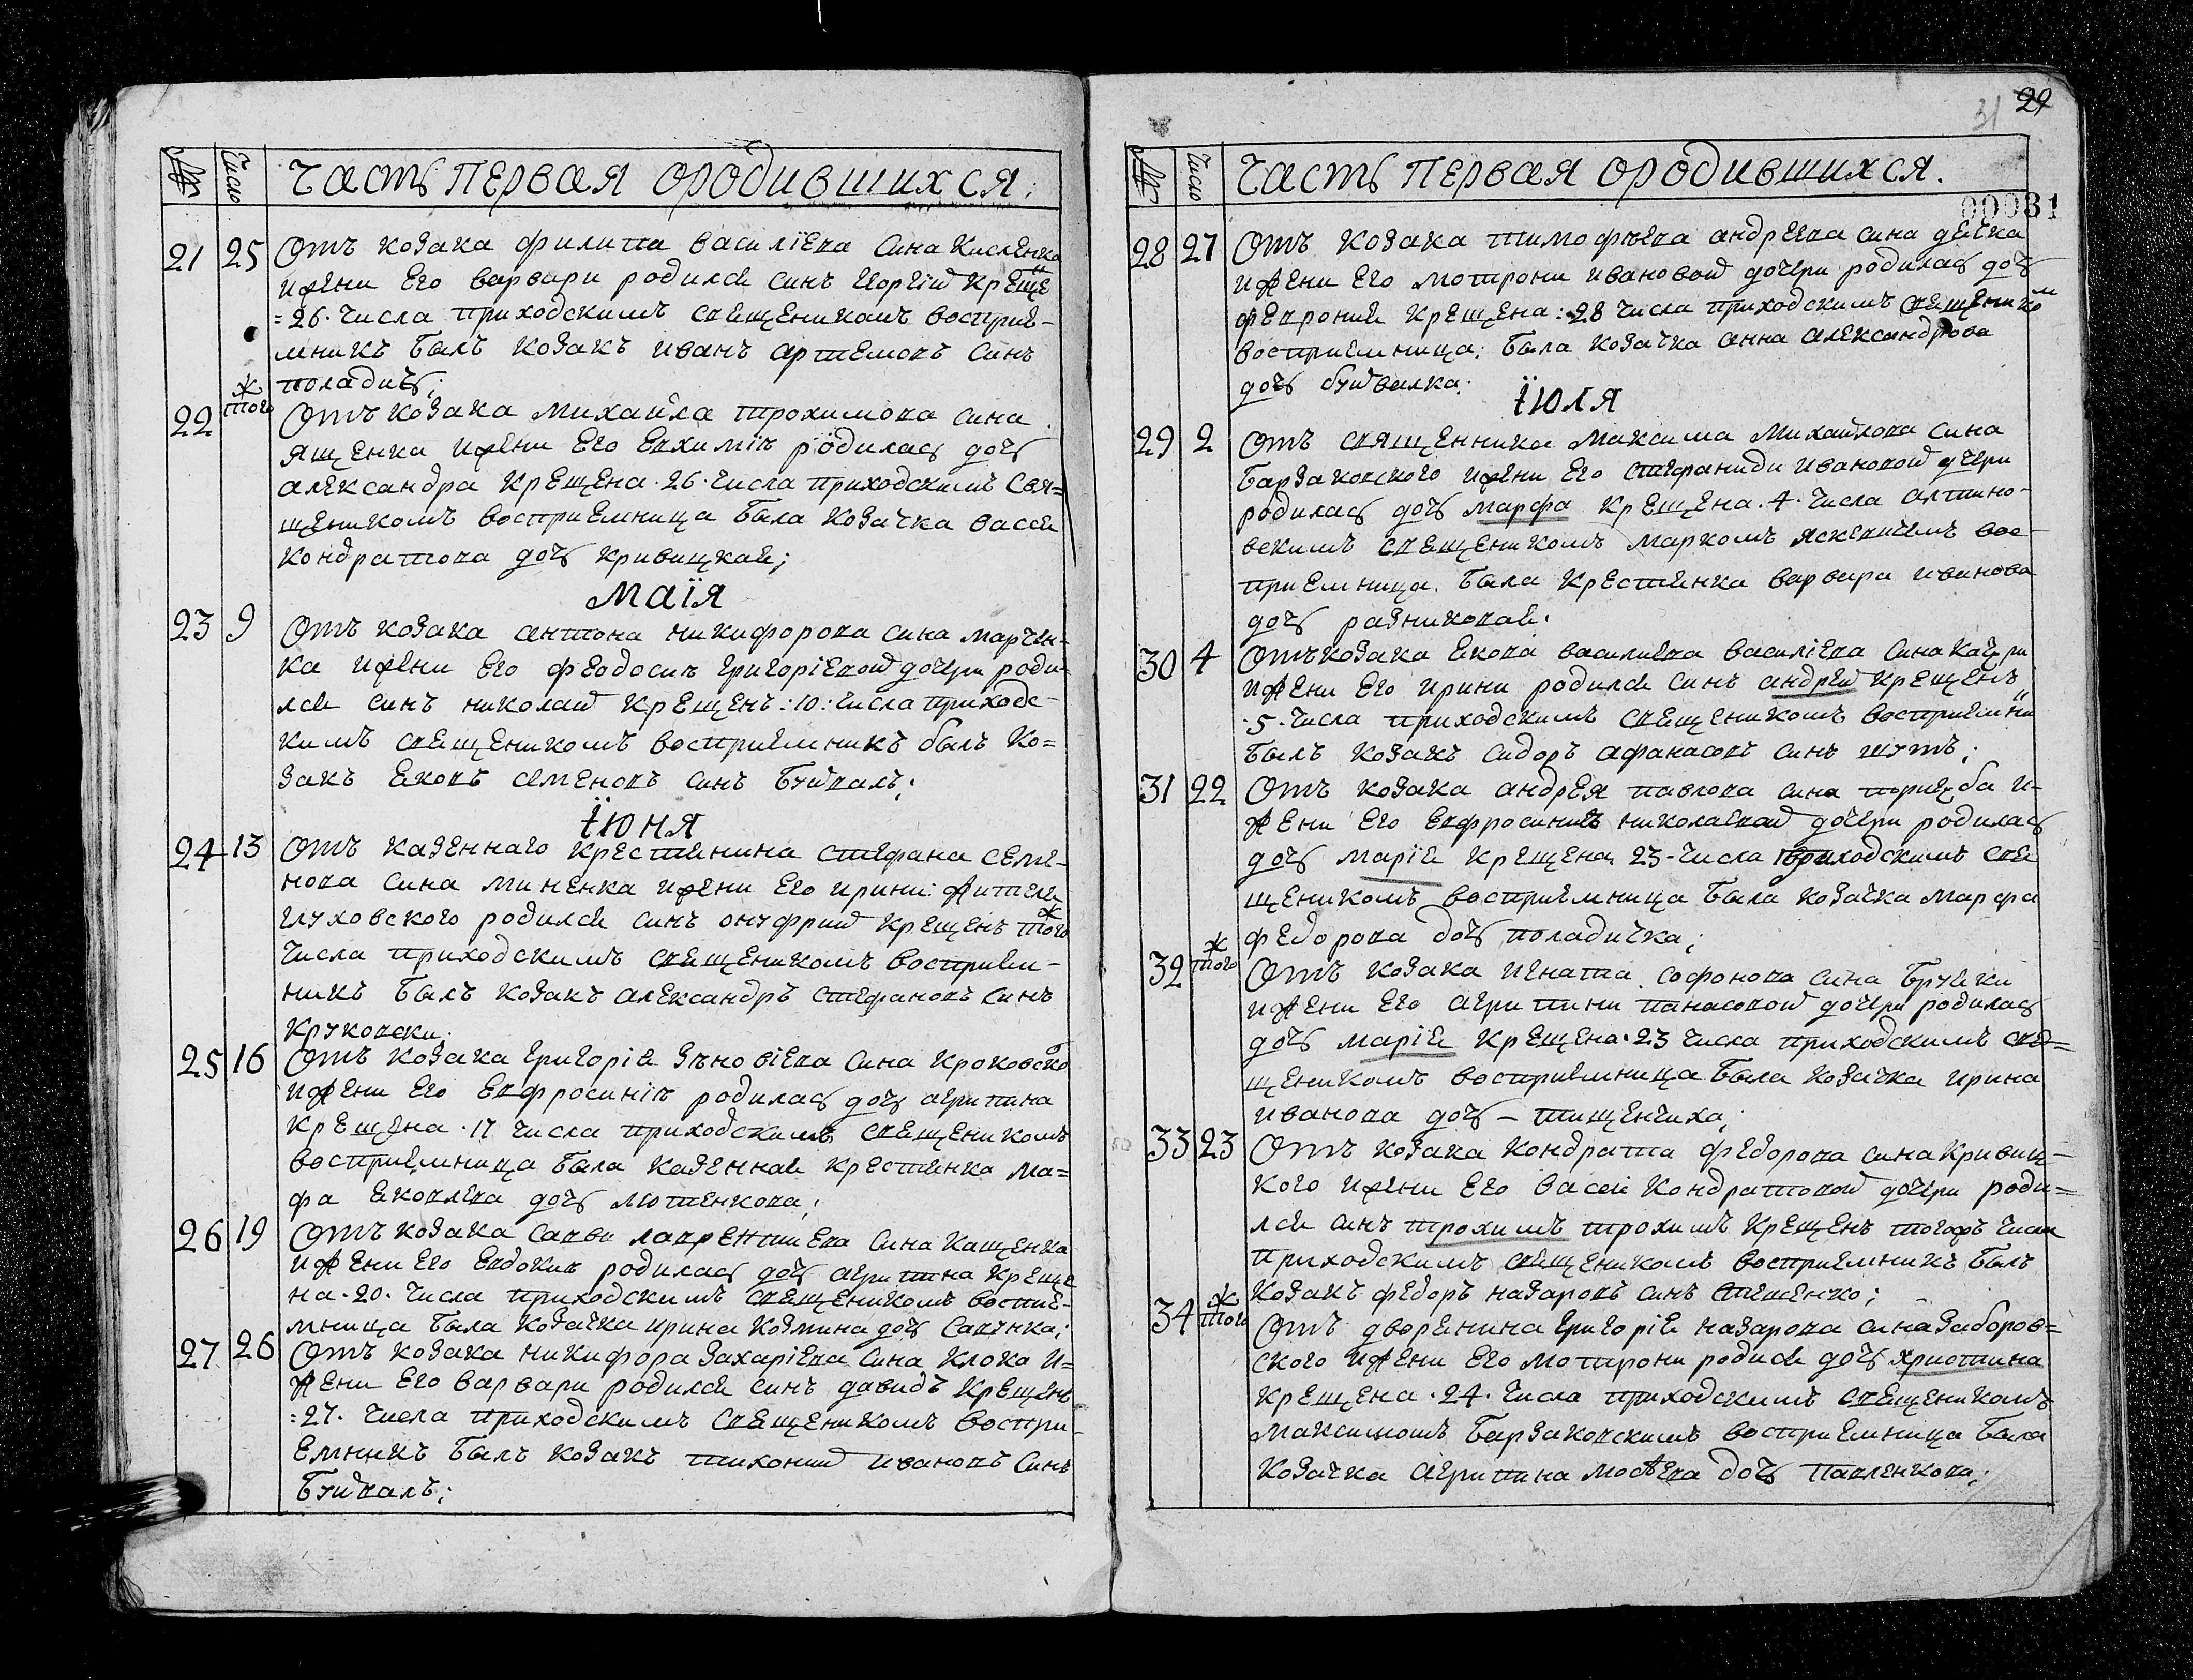 № Число Часть первая ородившихся.
21 25 Отъ козака филипа василіева сина Кисленка
ижени его варвари родился синъ Георгій Креще
=26. числа приходскимъ священикомъ восприе-
мникъ былъ козакъ иванъ артемовъ синъ
поладичъ;
22 тогож Отъ козака михаила трохимова сина
ященка ижени его евхиміѣ родилась дочь
александра крещена. 26. числа приходскимъ свя=
щеникомъ восприемница была козачка васся
кондратова дочь кривицкая;
маія
23 9 Отъ козака антона никифорова сина марчен-
ка ижени его феодосиѣ григоріевой дочери роди-
лся синъ николай крещенъ :10: числа приходс-
кимъ священикомъ восприемникъ былъ ко=
закъ яковъ семеновъ синъ буйвалъ;
іюня
24 13 Отъ казеннаго крестянина стефана семе-
нова сина миненка ижени его ирини: жителя
глуховского родился синъ онуфрий крещенъ тогож
числа приходскимъ священикомъ восприем-
никъ былъ козакъ александръ стефановъ синъ
круковски;
25 16 Отъ козака григорія зѣновіева сина кроковско
ижени его евфросиніѣ родилась дочь агрипина
крещена. 17 числа приходскимъ священикомъ
восприемница была казенная крестянка ма=
фа яковлева дочь лютенкова;
26 19 Отъ козака савви лаврентиева сина кащенка
ижени его евдокиѣ родилась дочь агрипина креще
на. 20. числа приходскимъ священикомъ воспие-
мница была козачка ирина козмина дочь савунка;
27 26 Отъ козака никифора захаріева сина клока и=
жени его варвари родился синъ давидъ крещенъ
=27. числа приходскимъ священикомъ воспри-
емникъ былъ козакъ тихоний ивановъ синъ
буйвалъ;
29
31
№ Число Часть первая ородившихся.
00031
28 27 Отъ козака тимофѣева андреева сина дейка
ижени его мотрони ивановой дочери родилась дочь
феврония крещена: 28 числа приходскимъ священиком
восприемница: была козачка анна александрова
дочь буйвалка:
іюля
29 2 Отъ священника максима михайлова сина
барзаковского ижени его стефаниди ивановой дочери
родилась дочь марфа крещена. 4. числа алтино-
вскимъ священикомъ маркомъ яскевичемъ вос-
приемница. была крестянка варвара иванова
дочь разниковая.
30 4 Отъ козака якова василиева василіева сина
ижени его ирини родился синъ андрей крещенъ
.5. числа приходскимъ священикомъ восприемни
былъ козакъ сидоръ афанасовъ синъ шутъ;
31 22 Отъ козака андрея павлова сина и-
жени его евфросиниѣ николаевой дочери родилась
дочь марія крещена 23-числа приходскимъ свя
щеникомъ восприемница была козачка марфа
федорова дочь поладичка;
32 тогож Отъ козака игната софонова сина
ижени его агрипини панасовой дочери родилась
дочь марія крещена. 23 числа приходскимъ свя=
щеникомъ восприемница была козачка ирина
иванова дочь – тищенчиха;
33 23 Отъ козака кондрата федорова сина кривиц-
кого ижени его васси кондратовой дочери роди=
лся синъ трохимъ трохимъ крещенъ тогожъ числа
приходскимъ священикомъ восприемникъ былъ
козакъ федоръ назаровъ синъ стешенко;
34 тогож Отъ дворянина григорія назарова сина заборов=
ского ижени его мотрони родися дочь христина
крещена. 24. числа приходскимъ священикомъ
максимомъ барзаковскимъ восприемница была
козачка агрипина мосѣева дочь павленкова;